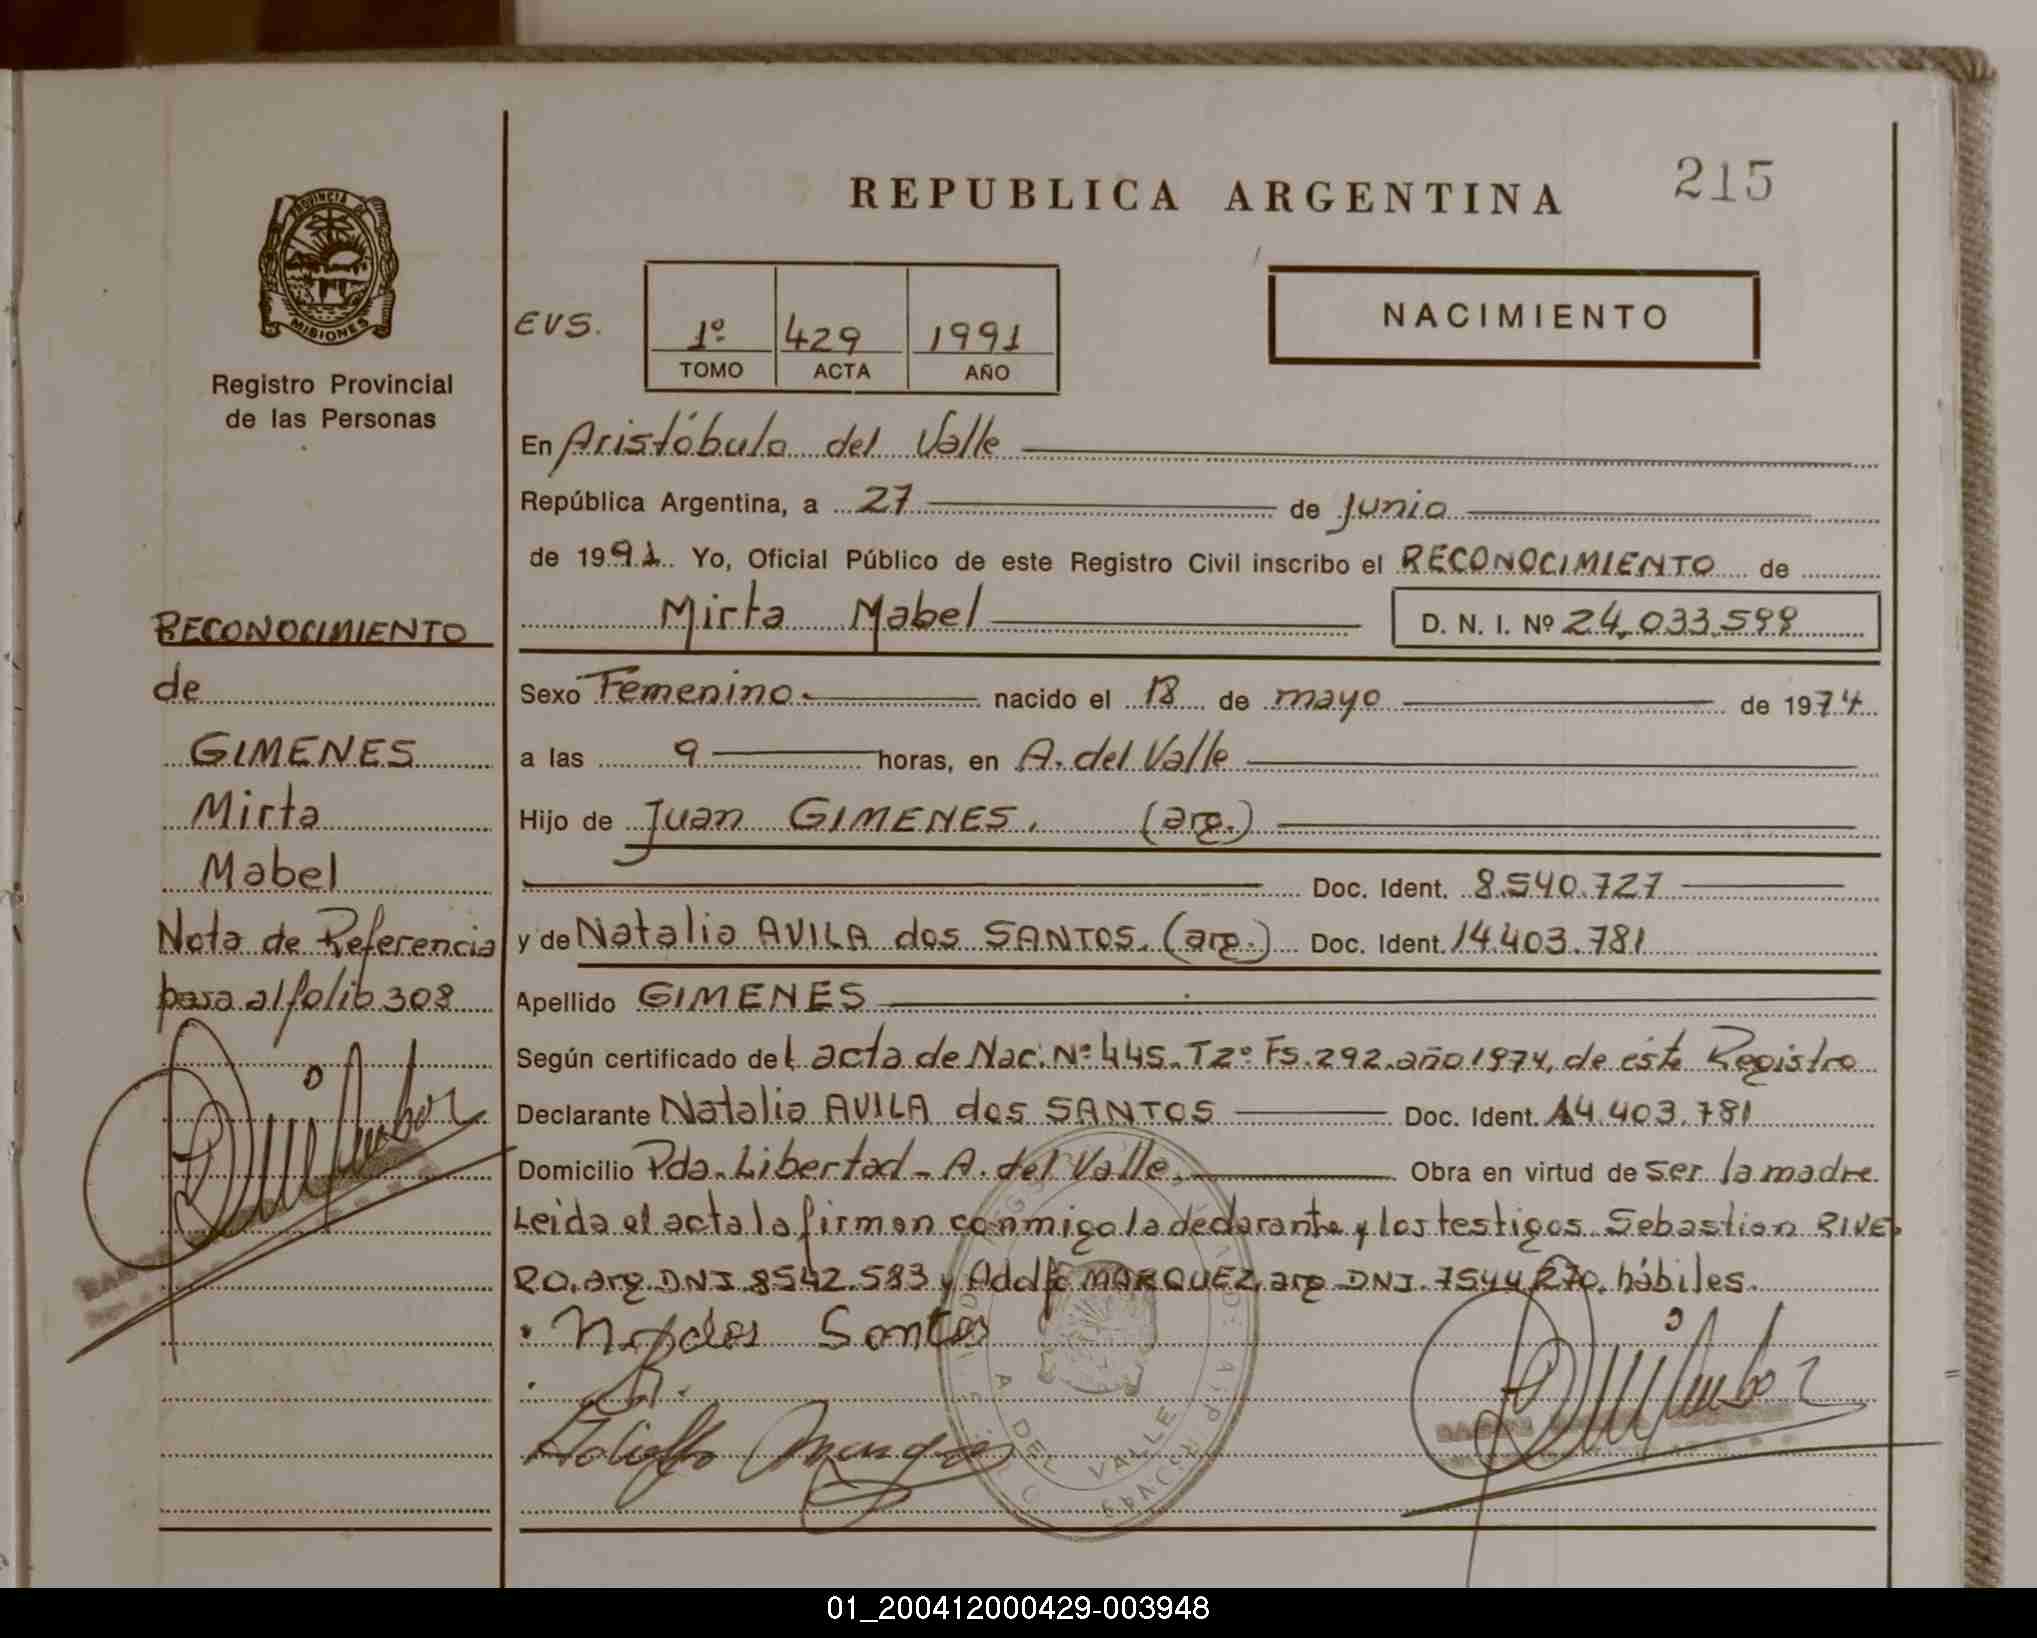 REPUBLICA ARGENTINA
215
PROVINCIA DE
MISIONES
Registro Provincial
de las Personas
EVS.
1º 429 1991
TOMO ACTA AÑO
NACIMIENTO
En Aristóbulo del Valle
República Argentina, a 27 de Junio
de 1991. Yo, Oficial Público de este Registro Civil inscribo el RECONOCIMIENTO de
Mirta Mabel D. N. I. Nº 24.033.599
Sexo Femenino. nacido el 18 de mayo de 1974
a las 9 horas, en A. del Valle
Hijo de Juan GIMENES. (arg.)
Doc. Ident. 8.540.727
y de Natalia AVILA dos SANTOS. (arg.) Doc. Ident. 14.403.781
Apellido GIMENES
Según certificado del acta de Nac. Nº 445. T2º Fs. 292. año 1974, de este Registro
Declarante Natalia AVILA dos SANTOS Doc. Ident. 14.403.781
Domicilio Pda. Libertad - A. del Valle. Obra en virtud de ser la madre
Leida el acta la firman conmigo la declarante y los testigos Sebastian RIVE
RO, arg DNI 8542.583 y Adolfo MARQUEZ, arg DNI. 7544270. hábiles.
RECONOCIMIENTO
de
GIMENES
Mirta
Mabel
Nota de Referencia
pasa al folio 308
A DEL VALLE
01_200412000429-003948